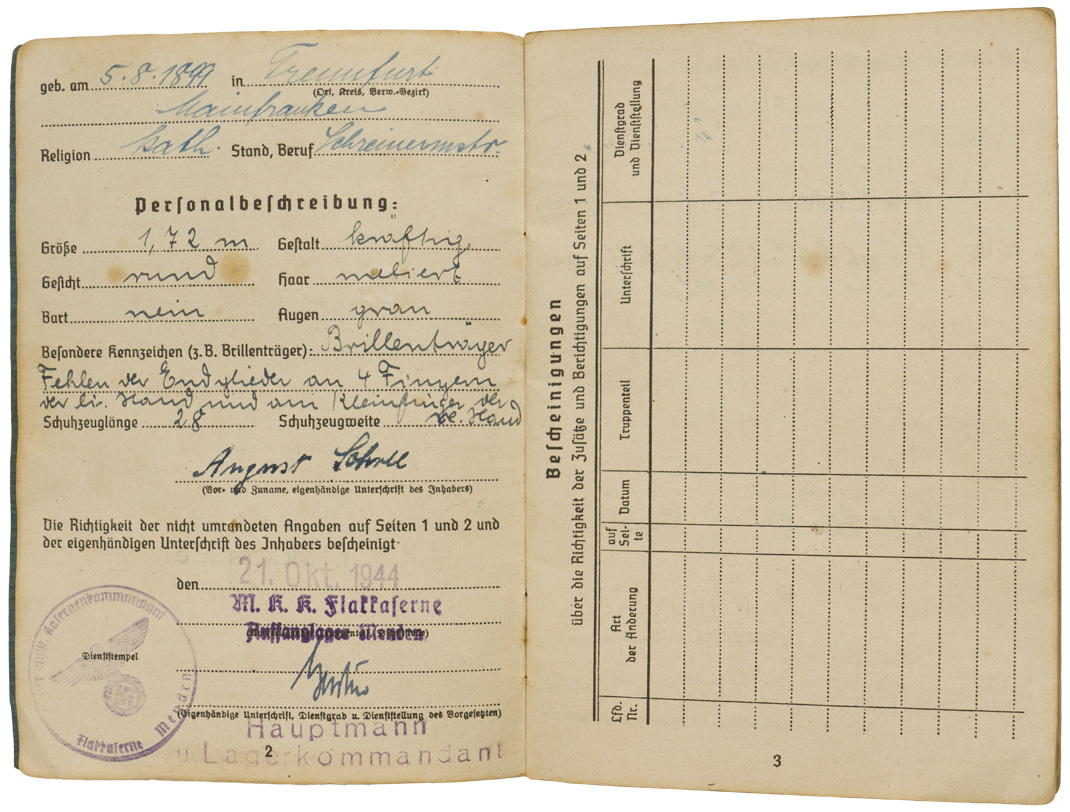 geb. am 5.8.1899 in Trennfurt
(Ort, Kreis, Verw.-Bezirk)
Mainfranken
Religion kath. Stand, Beruf Schreinermstr.
Personalbeschreibung:
Größe 1,72 m Gestalt kräftig
Gesicht rund Haar meliert
Bart nein Augen grau
Besondere Kennzeichen (z.B. Brillenträger): Brillenträger
Fehlen der Endglieder an 4 Fingern
der li. Hand und am Kleinfinger der
re. Hand
Schuhzeuglänge 28 Schuhzeugweite
August
(Vor- und Zuname, eigenhändige Unterschrift des Inhabers)
Die Richtigkeit der nicht umrandeten Angaben auf Seiten 1 und 2 und
der eigenhändigen Unterschrift des Inhabers bescheinigt
den 21. Okt. 1944
M. K. K. Flakkaserne
Auffanglager Menden
Kasernenkommandant
Dienststempel
Menden
Flakkaserne
(Eigenhändige Unterschrift, Dienstgrad u. Dienststellung des Vorgesetzten)
Hauptmann
u. Lagerkommandant
2
Bescheinigungen
über die Richtigkeit der Zusätze und Berichtigungen auf Seiten 1 und 2
Lfd. Nr.
Art der Änderung
auf Sei-
te
Datum
Truppenteil
Unterschrift
Dienstgrad
und Dienststellung
3